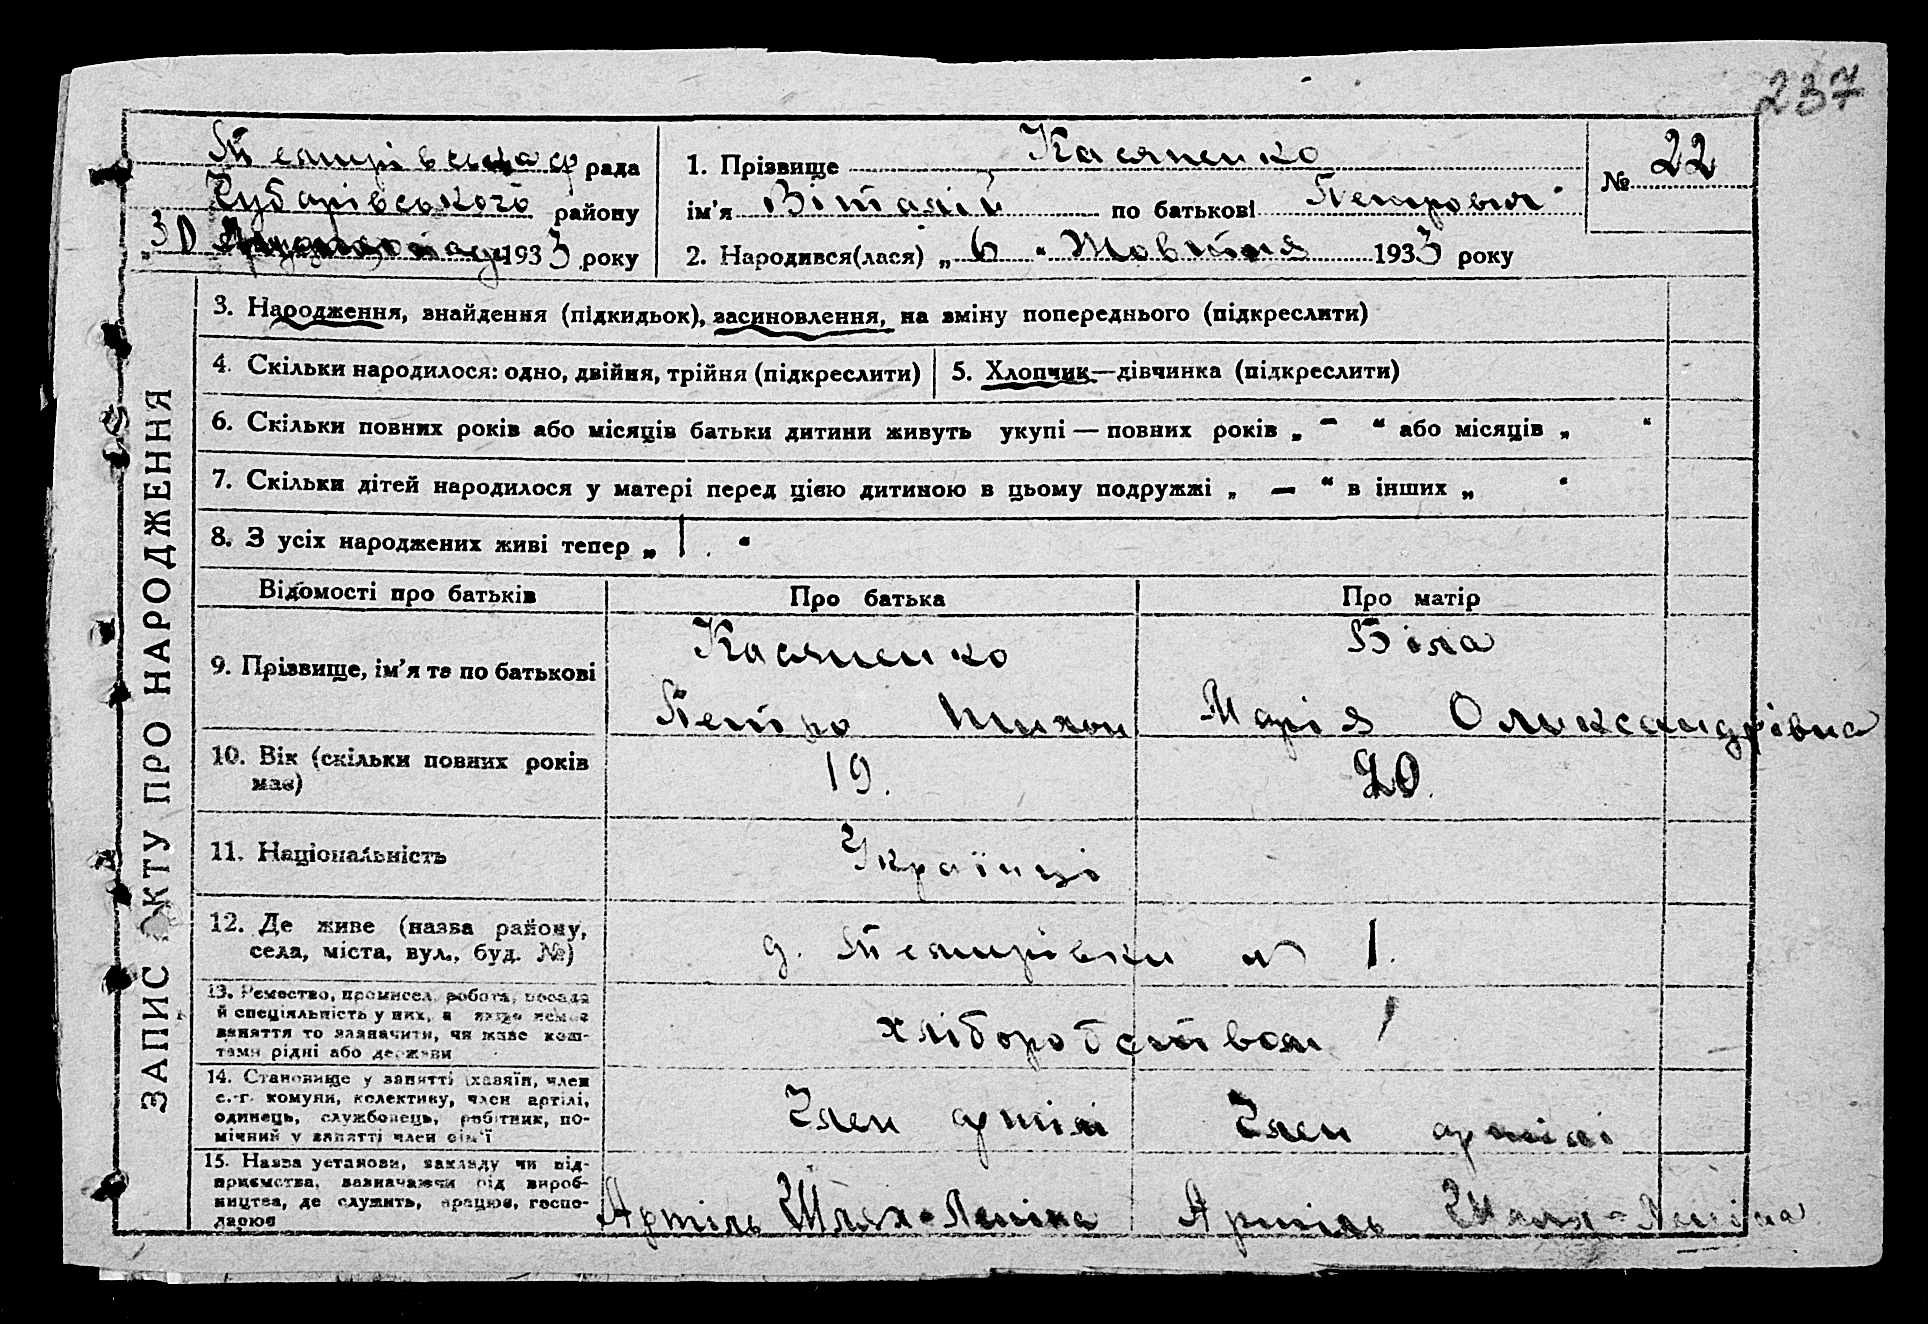 237
рада
Чубарівського району
30 1933 року
1. Прізвище Касяненко
ім'я Віталій по батькові Петрович
2. Народився(лася) „ 6 “ Жовтня 1933 року
№ 22
ЗАПИС АКТУ ПРО НАРОДЖЕННЯ
3. Народження, знайдення (підкидьок), засиновлення, на зміну попереднього (підкреслити)
4. Скільки народилося: одно, двійня, трійня (підкреслити)
5. Хлопчик—дівчинка (підкреслити)
6. Скільки повних років або місяців батьки дитини живуть укупі — повних років „ - “ або місяців „ “
7. Скільки дітей народилося у матері перед цією дитиною в цьому подружжі „ — “ в інших „ “
8. З усіх народжених живі тепер „ 1. “
Відомості про батьків
Про батька
Про матір
9. Прізвище, ім'я та по батькові
Касяненко
Петро Тихон
Біла
Марія Олександрівна
10. Вік (скільки повних років
має)
19.
20.
11. Національність
Українці
12. Де живе (назва району,
села, міста, вул., буд. №)
1.
13. Ремество, промисел, робота, посада
й спеціяльність у них, а якщо немає
заняття то зазначити, чи живе кош-
тами рідні або держави
хліборобством
14. Становище у занятті (хазяїн, член
с.-г. комуни, колективу, член артілі,
одинець, службовець, робітник, по-
мічний у занятті член сім'ї
Член артілі
Член артілі
15. Назва установи, закладу чи під-
приємства, зазначаючи рід вироб-
ництва, де служить, працює, госпо-
дарює
Артіль Шлях-Леніна
Артіль Шлях-Леніна